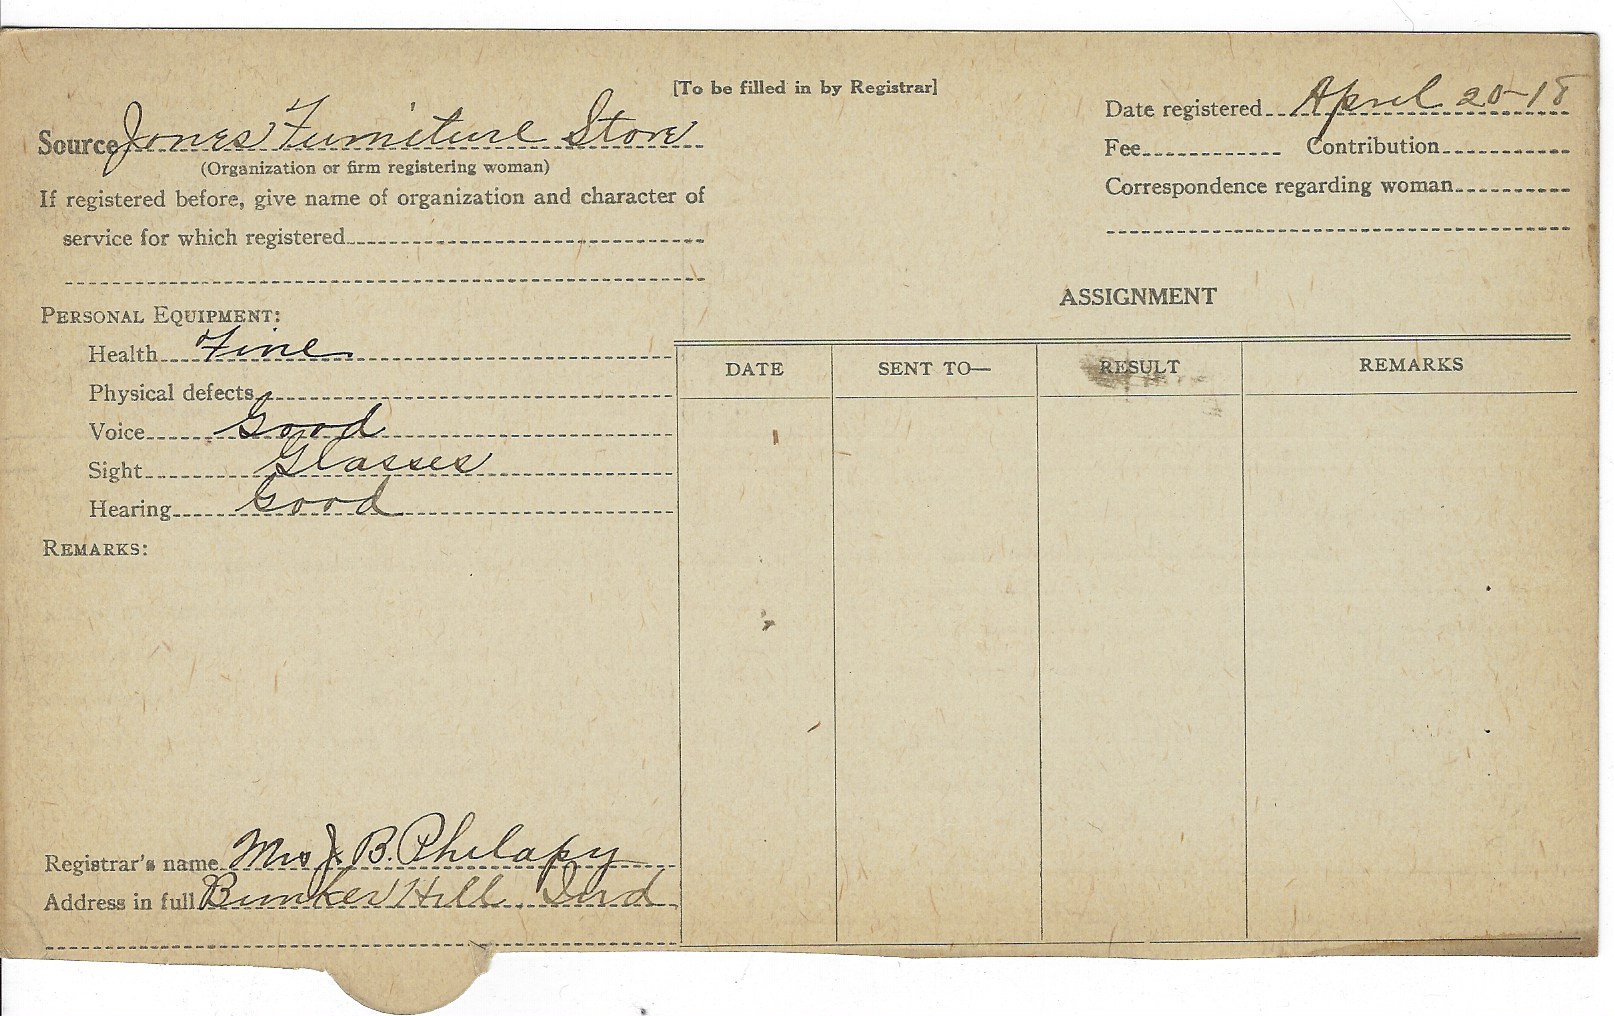 [To be filled in by Registrar]
Source Jones Furniture Store
(Organization or firm registering woman)
If registered before, give name of organization and character of
service for which registered
Date registered April 20-18
Fee Contribution
Correspondence regarding woman
PERSONAL EQUIPMENT:
Health Fine
Physical defects
Voice Good
Sight Glasses
Hearing Good
REMARKS:
Registrar's name Mrs J. B. Philapy
Address in full Bunker Hill Ind
ASSIGNMENT
DATE SENT TO— RESULT REMARKS